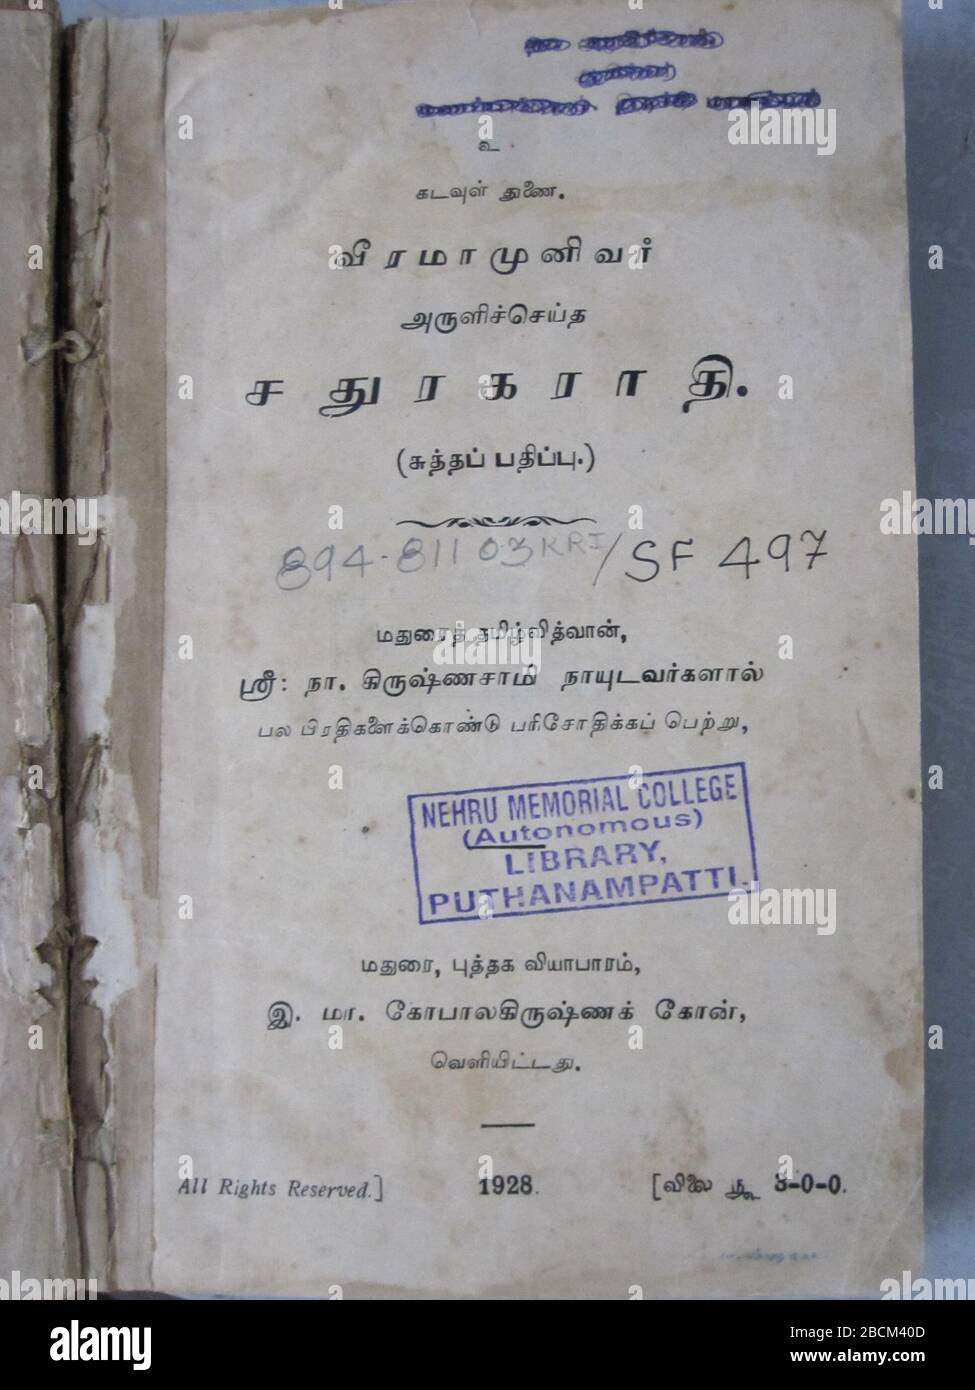 உ
கடவுள் துணை.
வீரமாமுனிவர்
அருளிச்செய்த
சதுரகராதி.
(சுத்தப் பதிப்பு.)
894-811 03 KRI / SF 497
மதுரைத் தமிழ்வித்வான்,
ஸ்ரீ: நா. கிருஷ்ணசாமி நாயுடவர்களால்
பல பிரதிகளைக்கொண்டு பரிசோதிக்கப் பெற்று,
NEHRU MEMORIAL COLLEGE
(Autonomous)
LIBRARY,
PUTHANAMPATTI.
மதுரை, புத்தக வியாபாரம்,
இ. மா. கோபாலகிருஷ்ணக் கோன்,
வெளியிட்டது.
All Rights Reserved.] 1928. [விலை ரூ 3-0-0.
alamy
Image ID: 2BCM40D
www.alamy.com